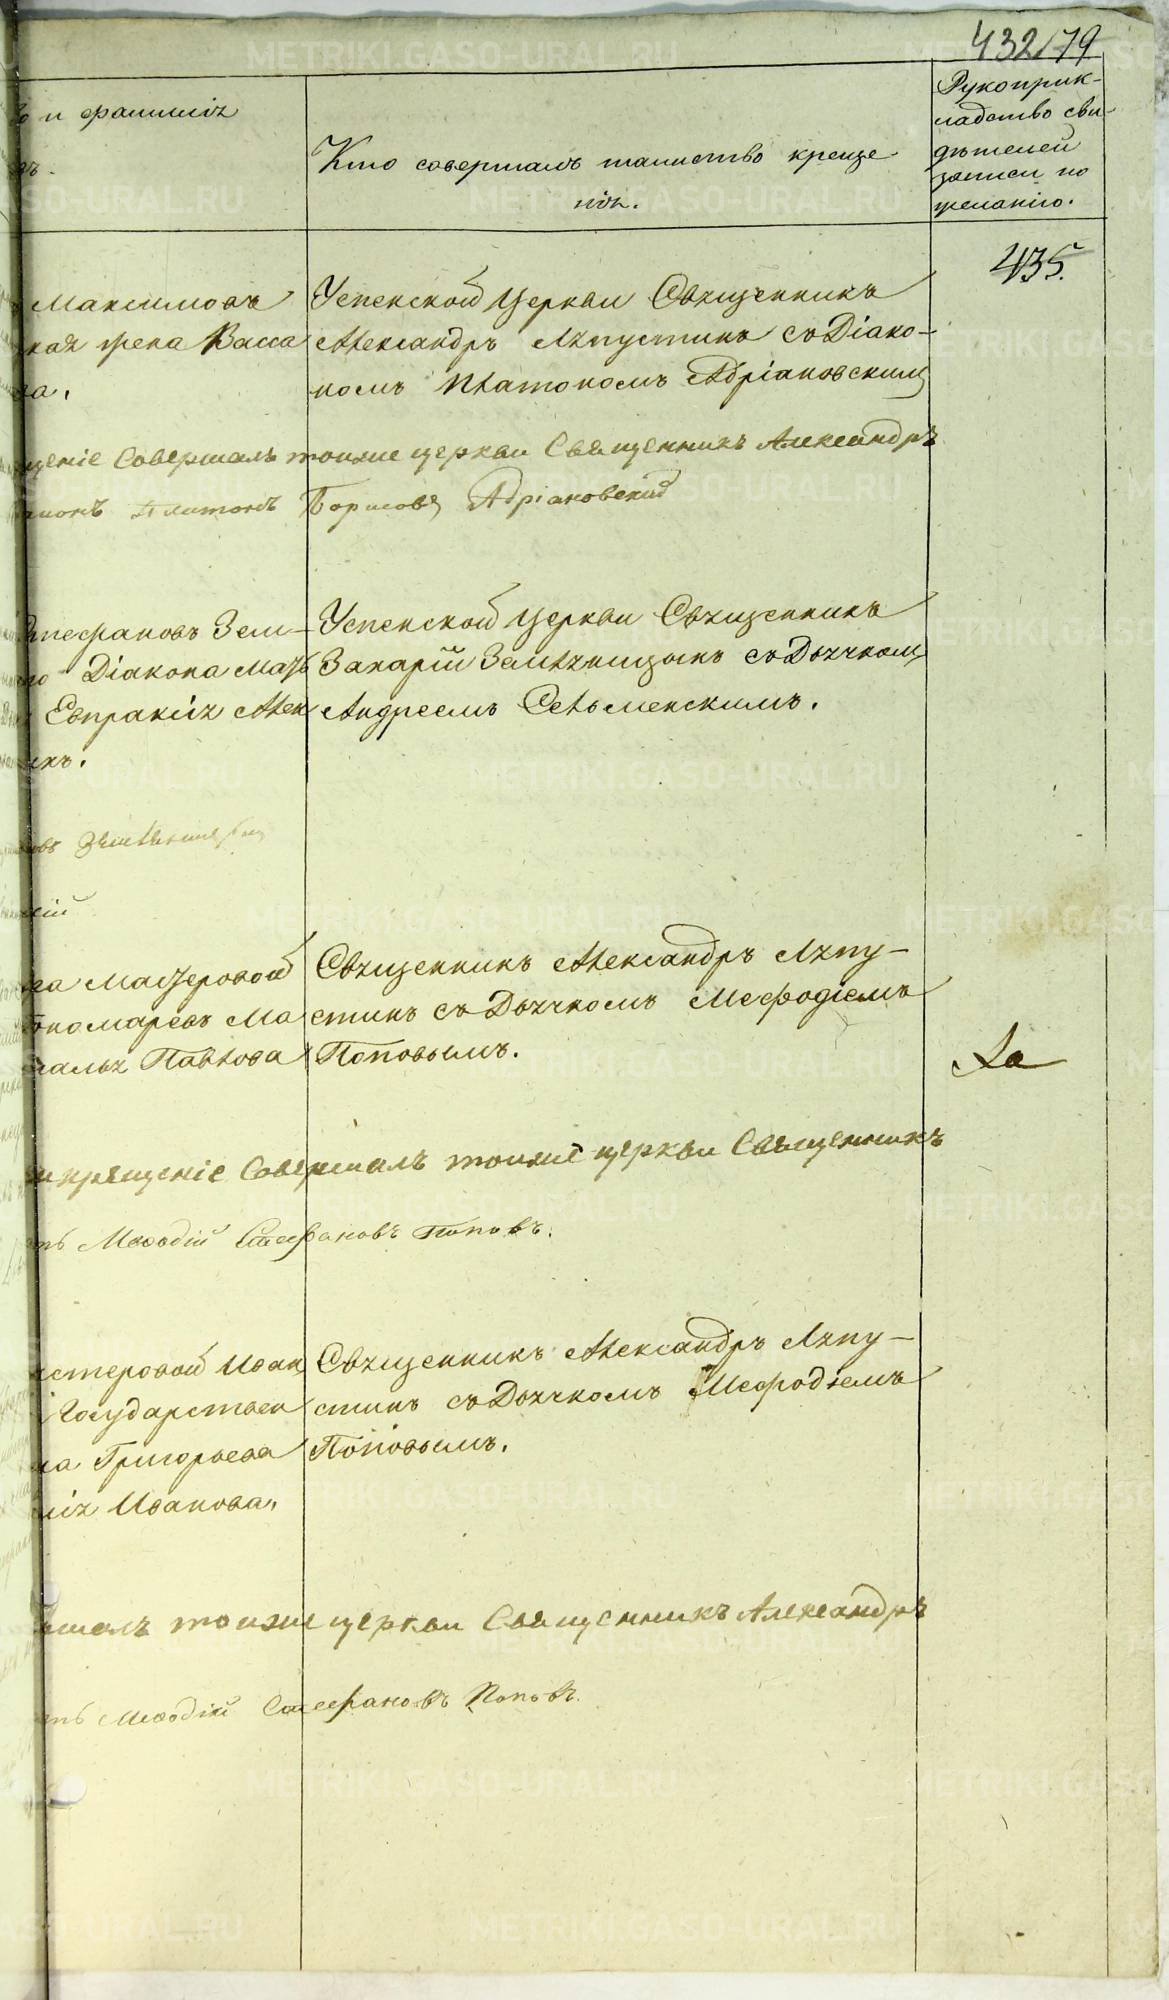 432/79
и фамилія
Кто совершалъ таинство креще
нія.
Рукоприк-
ладство сви-
дѣтелей
записи по
желанію.
435.
Максимовъ
жена Васса
Успенской Церкви Священникъ
Александръ Ляпустинъ съ Діако-
номъ Платономъ Адріановскимъ
щеніе Совершалъ тоиже церкви Священникъ Александръ
Платонъ Борисовъ Адріановскій
Стефановъ Зем-
Діакона
Евпраксія Алек
Успенской Церкви Священникъ
Захарій Земляницынъ съ Дьячкомъ
Андреемъ Сельменскимъ.
Мастеровой
Пономаревъ Ма
Павлова
Священникъ Александръ Ляпу-
стинъ съ Дьячкомъ Мефодіемъ
Поповымъ.
Ла
крещеніе Совершалъ тоиже церкви Священникъ
Меѳодій Стефановъ Поповъ.
стеровой Иван
Государствен
на Григорьева
лія Иванова.
Священникъ Александръ Ляпу-
стинъ съ Дьячкомъ Мефодіемъ
Поповымъ.
шалъ тоиже церкви Священникъ Александръ
Меѳодій Стефановъ Поповъ.
METRIKI.GASO-URAL.RU